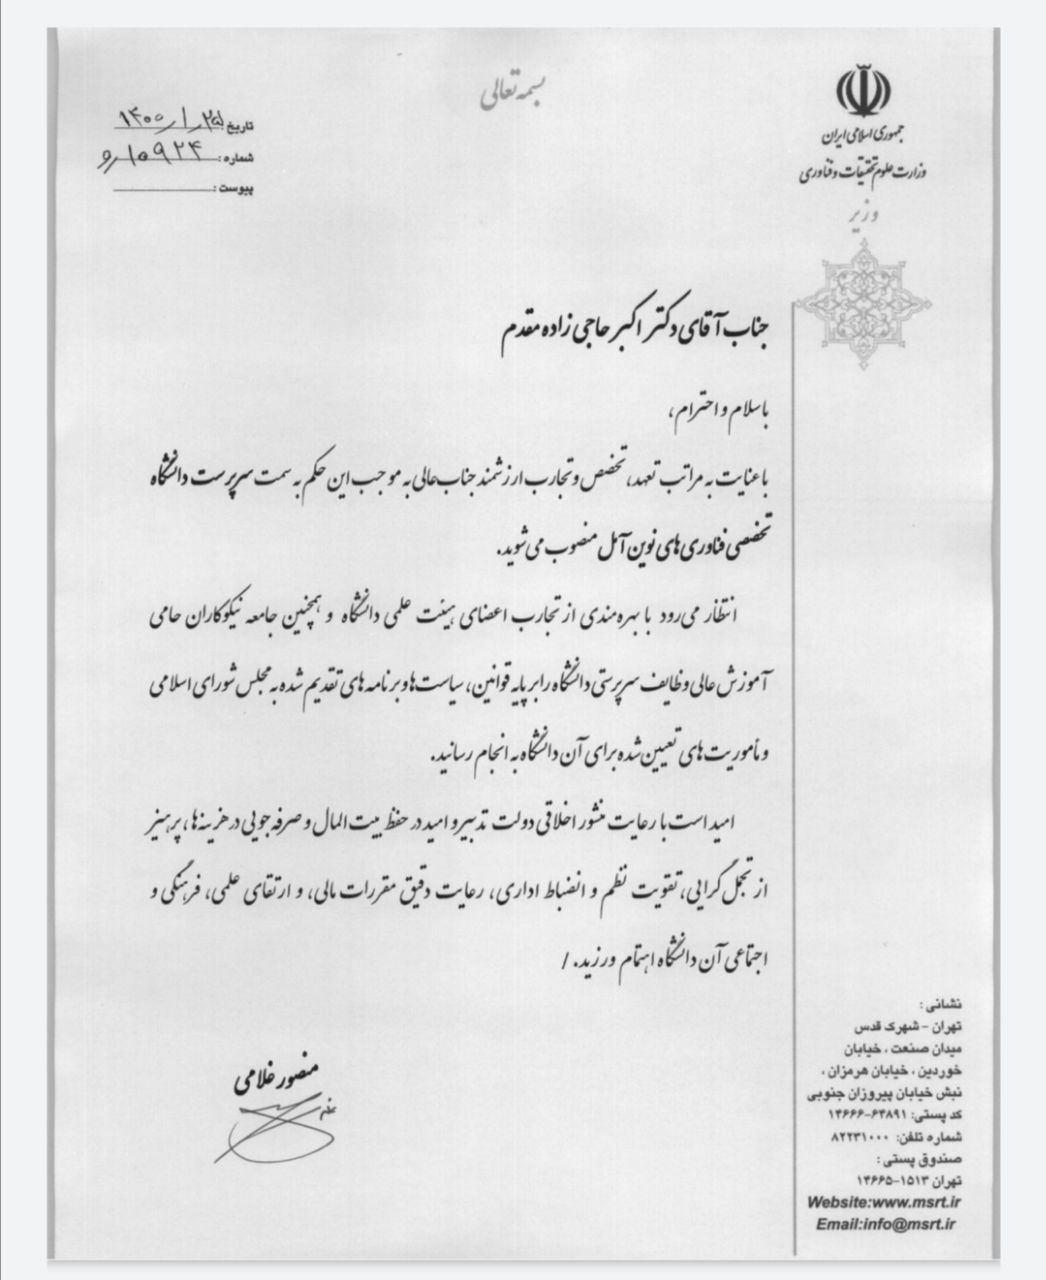 بسمه تعالی
جمهوری اسلامی ایران
وزارت علوم تحقیقات و فناوری
وزیر
تاریخ ۱۴۰۰/۱/۲۵
شماره : ۱۰۹۲۴/و
پیوست :
جناب آقای دکتر اکبر حاجی زاده مقدم
با سلام و احترام،
با عنایت به مراتب تعهد، تخصص و تجارب ارزشمند جناب‌عالی به موجب این حکم به سمت سرپرست دانشگاه
تخصصی فناوری‌های نوین آمل منصوب می‌شوید.
انتظار می‌رود با بهره‌مندی از تجارب اعضای هیئت علمی دانشگاه و همچنین جامعه نیکوکاران حامی
آموزش عالی وظایف سرپرستی دانشگاه را بر پایه قوانین، سیاست‌ها و برنامه‌های تقدیم شده به مجلس شورای اسلامی
و مأموریت‌های تعیین شده برای آن دانشگاه به انجام رسانید.
امید است با رعایت منشور اخلاقی دولت تدبیر و امید در حفظ بیت المال و صرفه جویی در هزینه‌ها، پرهیز
از تجمل گرایی، تقویت نظم و انضباط اداری، رعایت دقیق مقررات مالی، و ارتقای علمی، فرهنگی و
اجتماعی آن دانشگاه اهتمام ورزید. /
منصور غلامی
نشانی :
تهران - شهرک قدس
میدان صنعت ، خیابان
خوردین ، خیابان هرمزان ،
نبش خیابان پیروزان جنوبی
کد پستی: ۶۴۸۹۱-۱۴۶۶۶
شماره تلفن: ۸۲۲۳۱۰۰۰
صندوق پستی :
تهران ۱۵۱۳-۱۴۶۶۵
Website:www.msrt.ir
Email:info@msrt.ir